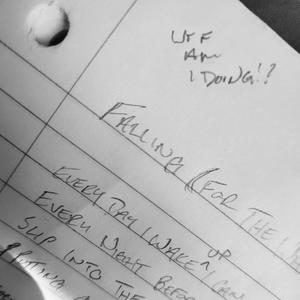 WTF
AM
I DOING!?
FALLING (FOR THE
EVERY DAY I WAKE UP I CAN
EVERY NIGHT BEFORE
SLIP INTO THE